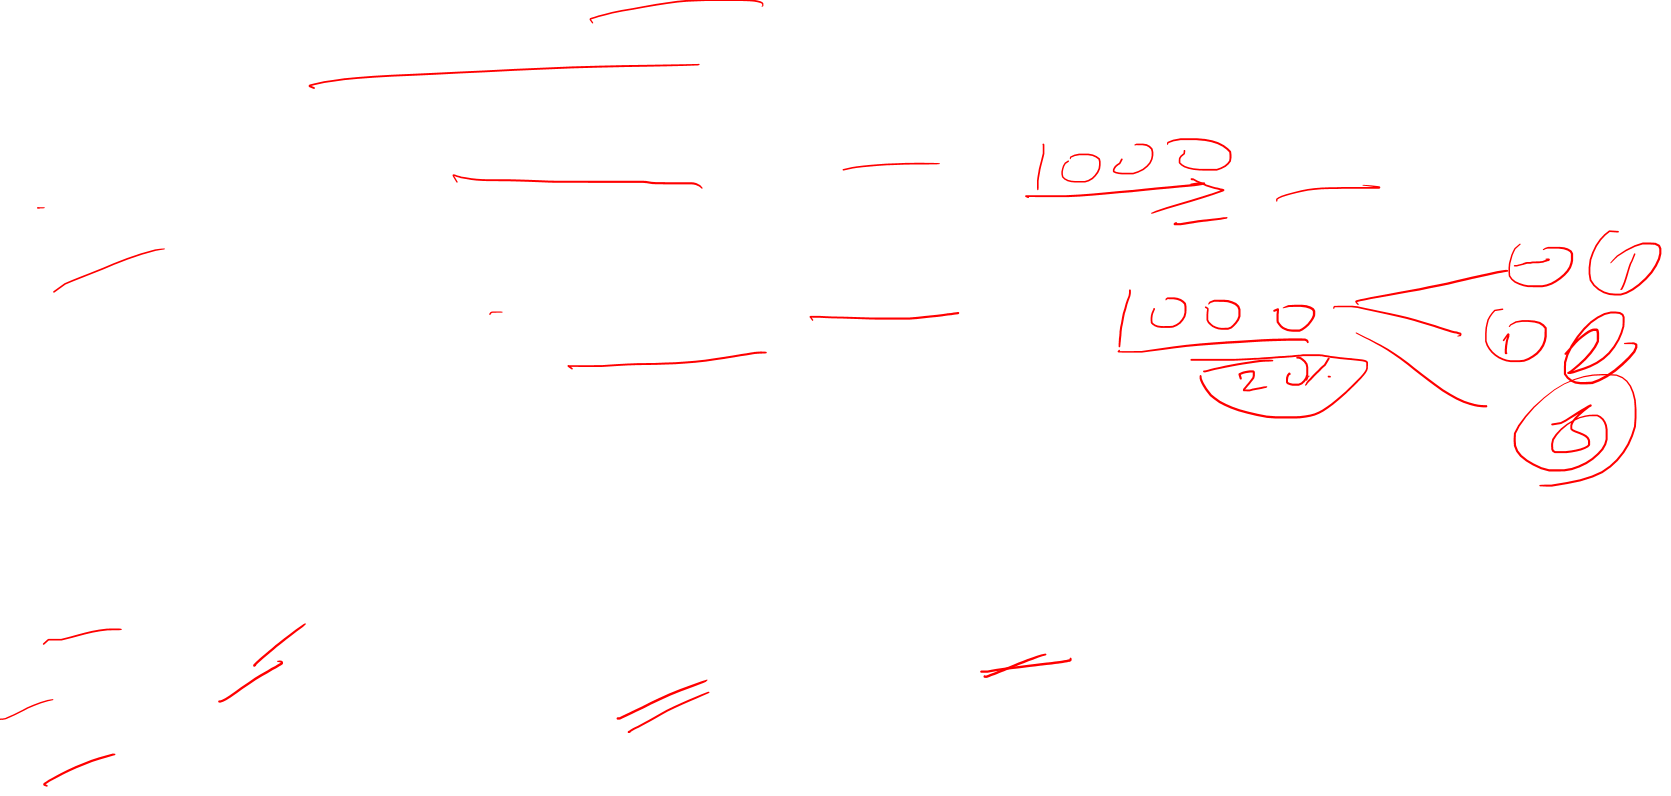 1000
1000
20%
1
1 2
5